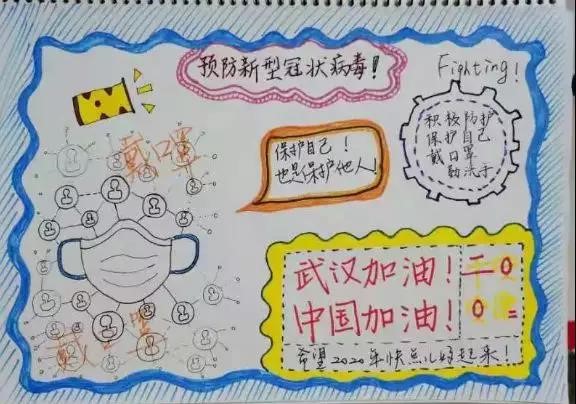 预防新型冠状病毒!
Fighting!
戴口罩
保护自己!
也是保护他人!
积极防护
保护自己
戴口罩
勤洗手
武汉加油!
中国加油!
二0
0二
希望2020年快点儿好起来!
戴口罩